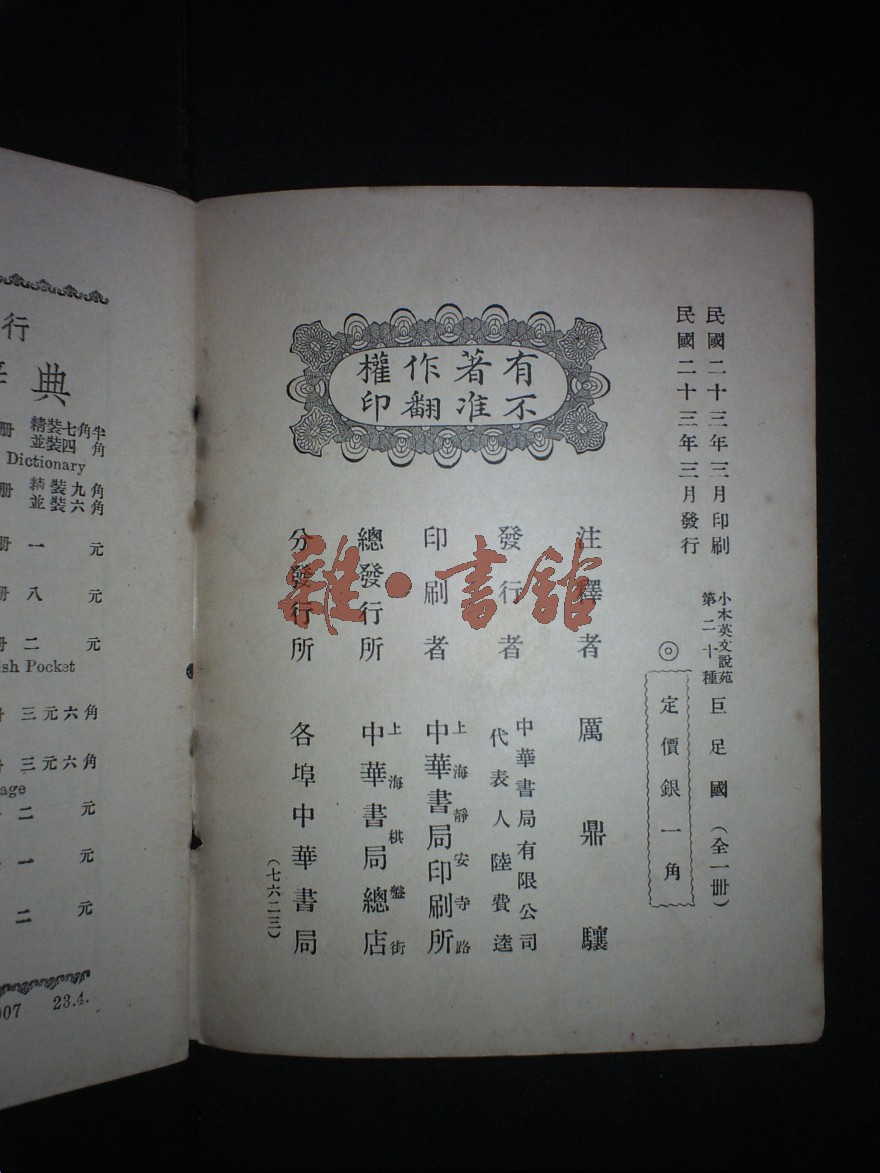 民國二十三年三月印刷
民國二十三年三月發行
小本英文說苑
第二十種
巨足國（全一册）
◎
定價銀一角
有著作權
不准翻印
注釋者 厲鼎驤
發行者 中華書局有限公司
代表人陸費逵
印刷者 上海靜安寺路
中華書局印刷所
總發行所 上海棋盤街
中華書局總店
分發行所 各埠中華書局
（七六二三）
雜·書館
行
典
册 精裝七角半
並裝四角
Dictionary
册 精裝九角
並裝六角
册 一元
册 八元
册 二元
Pocket
三元六角
三元六角
二元
一元
二元
23.4.